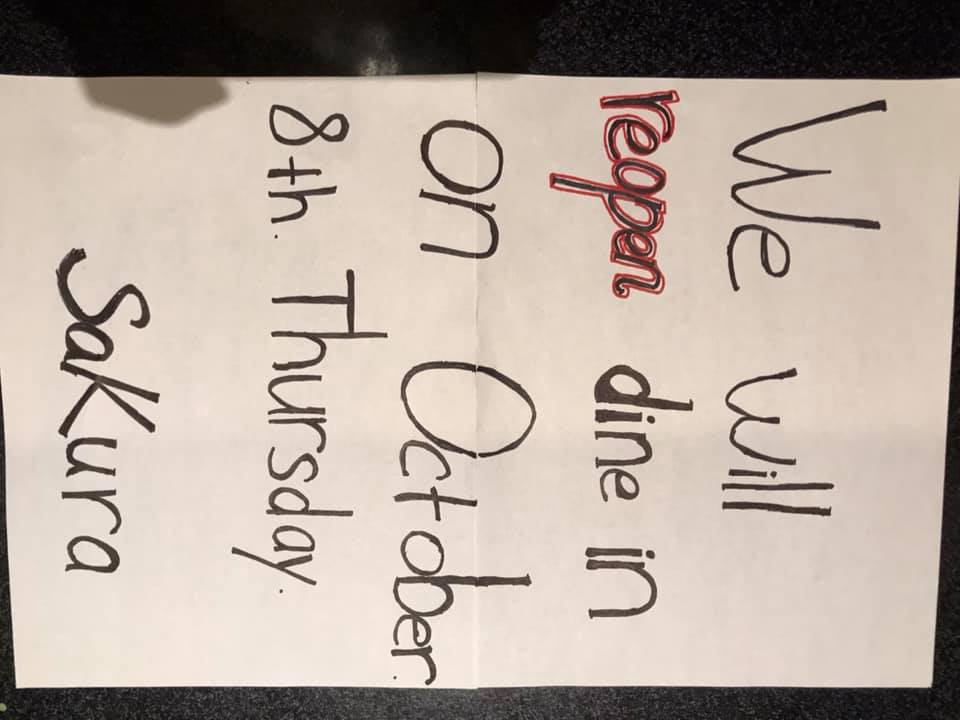 We will
reopen dine in
on October
8th. Thursday.
Sakura